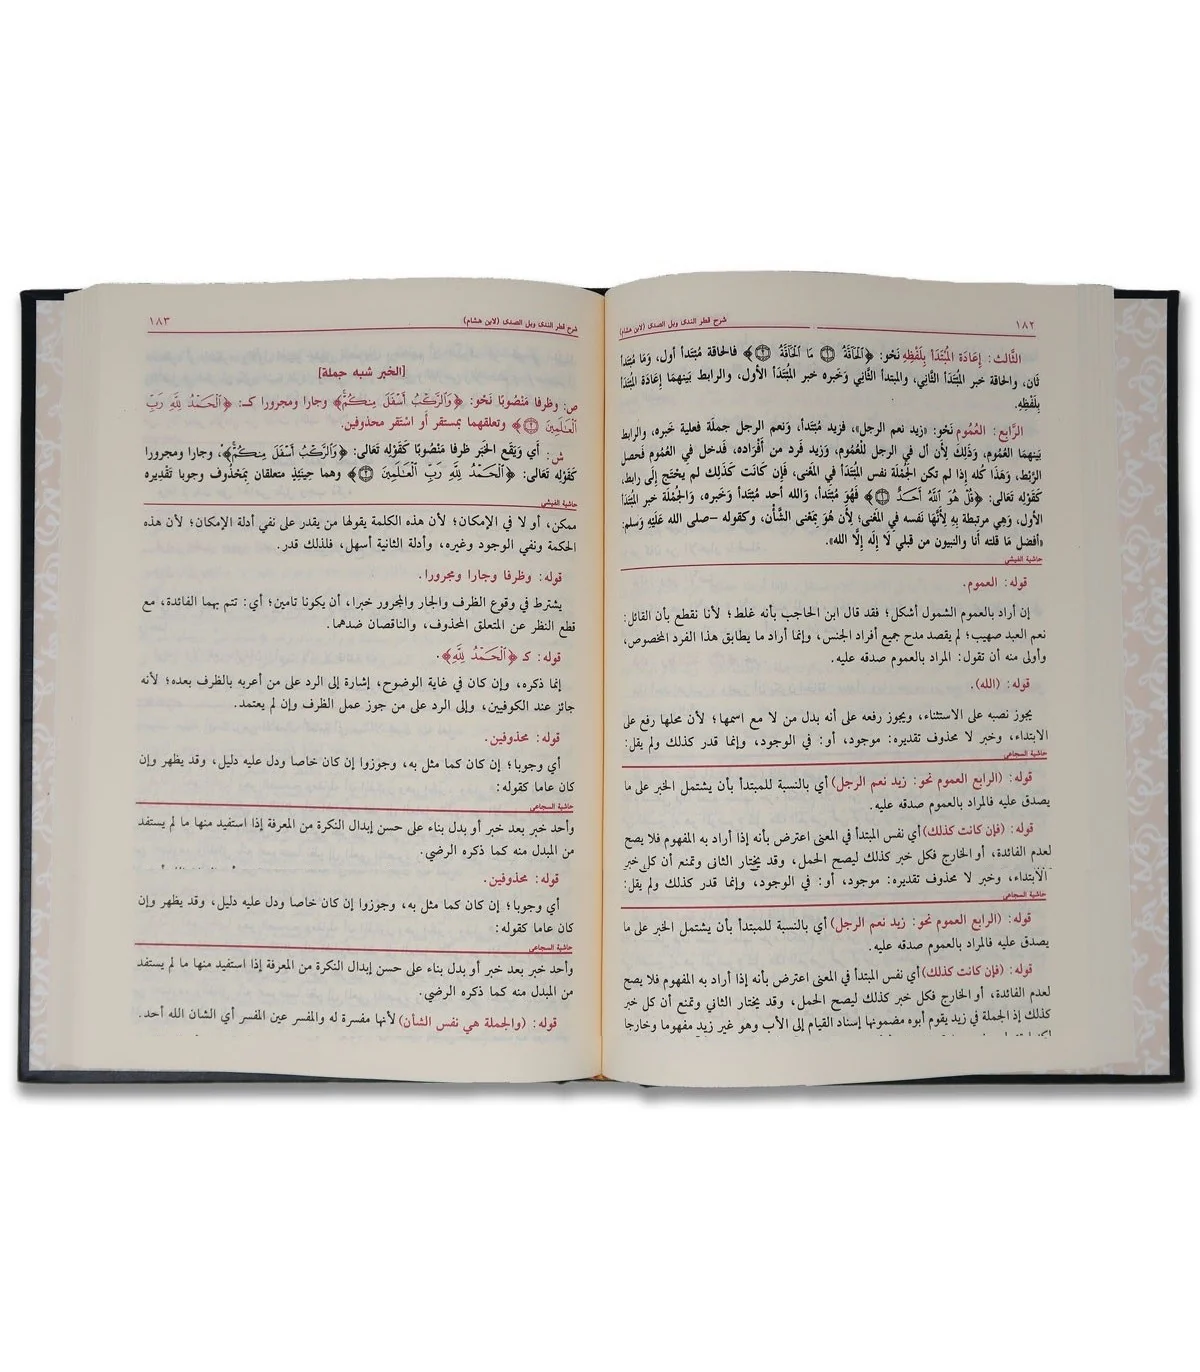 ١٨٢
شرح قطر الندى وبل الصدى (لابن هشام)
الثَّالث: إِعَادَة المُبْتَدَأ بِلَفْظِهِ نَحْو: ﴿ٱلْحَآقَّةُ ١ مَا ٱلْحَآقَّةُ ٢﴾ فالحاقة مُبْتَدأ أول، وَمَا مُبْتَدأ
ثَان، والحاقة خبر المُبْتَدَأ الثَّانِي، والمبتدأ الثَّانِي وَخَبره خبر المُبْتَدَأ الأول، والرابط بَينهمَا إِعَادَة المُبْتَدَأ
بِلَفْظِهِ.
الرَّابِع: العُمُوم نَحْو: «زيد نعم الرجل»، فزيد مُبْتَدأ، وَنعم الرجل جملَة فعلية خَبره، والرابط
بَينهمَا العُمُوم، وَذَلِكَ لِأَن أل في الرجل للْعُمُوم، وَزيد فَرد من أَفْرَاده، فَدخل في العُمُوم فَحصل
الرَّبْط، وَهَذَا كُله إِذا لم تكن الجُمْلَة نفس المُبْتَدَأ في المَعْنى، فَإِن كَانَت كَذَلِك لم يحْتَج إِلَى رابط،
كَقَوْلِه تَعَالَى: ﴿قُلْ هُوَ ٱللَّهُ أَحَدٌ ١﴾ فَهُوَ مُبْتَدأ، وَالله أحد مُبْتَدأ وَخَبره، وَالجُمْلَة خبر المُبْتَدَأ
الأول، وَهِي مرتبطة بِهِ لِأَنَّهَا نَفسه في المَعْنى؛ لِأَن هُوَ بِمَعْنى الشَّأْن، وكقوله –صلى الله عَلَيْهِ وَسلم:
«أفضل مَا قلته أَنا والنبيون من قبلي لَا إِلَه إِلَّا الله».
حاشية الفيشي
قوله: العموم.
إن أراد بالعموم الشمول أشكل؛ فقد قال ابن الحاجب بأنه غلط؛ لأنا نقطع بأن القائل:
نعم العبد صهيب؛ لم يقصد مدح جميع أفراد الجنس، وإنما أراد ما يطابق هذا الفرد المخصوص،
وأولى منه أن تقول: المراد بالعموم صدقه عليه.
قوله: (الله).
يجوز نصبه على الاستثناء، ويجوز رفعه على أنه بدل من لا مع اسمها؛ لأن محلها رفع على
الابتداء، وخبر لا محذوف تقديره: موجود، أو: في الوجود، وإنما قدر كذلك ولم يقل:
حاشية السجاعي
قوله: (الرابع العموم نحو: زيد نعم الرجل) أي بالنسبة للمبتدأ بأن يشتمل الخبر على ما
يصدق عليه فالمراد بالعموم صدقه عليه.
قوله: (فإن كانت كذلك) أي نفس المبتدأ في المعنى اعترض بأنه إذا أراد به المفهوم فلا يصح
لعدم الفائدة، أو الخارج فكل خبر كذلك ليصح الحمل، وقد يختار الثاني وتمنع أن كل خبر
الابتداء، وخبر لا محذوف تقديره: موجود، أو: في الوجود، وإنما قدر كذلك ولم يقل:
حاشية السجاعي
قوله: (الرابع العموم نحو: زيد نعم الرجل) أي بالنسبة للمبتدأ بأن يشتمل الخبر على ما
يصدق عليه فالمراد بالعموم صدقه عليه.
قوله: (فإن كانت كذلك) أي نفس المبتدأ في المعنى اعترض بأنه إذا أراد به المفهوم فلا يصح
لعدم الفائدة، أو الخارج فكل خبر كذلك ليصح الحمل، وقد يختار الثاني وتمنع أن كل خبر
كذلك إذ الجملة في زيد يقوم أبوه مضمونها إسناد القيام إلى الأب وهو غير زيد مفهوما وخارجا
شرح قطر الندى وبل الصدى (لابن هشام)
١٨٣
[الخبر شبه جملة]
ص: وظرفا مَنْصُوبًا نَحْو: ﴿وَٱلرَّكْبُ أَسْفَلَ مِنكُمْ﴾ وجارا ومجرورا كـ: ﴿ٱلْحَمْدُ لِلَّهِ رَبِّ
ٱلْعَٰلَمِينَ ٢﴾ وتعلقهما بمستقر أَو اسْتَقر محذوفين.
ش: أَي وَيَقَع الخَبَر ظرفا مَنْصُوبًا كَقَوْلِه تَعَالَى: ﴿وَٱلرَّكْبُ أَسْفَلَ مِنكُمْ﴾، وجارا ومجرورا
كَقَوْلِه تَعَالَى: ﴿ٱلْحَمْدُ لِلَّهِ رَبِّ ٱلْعَٰلَمِينَ ٢﴾ وهما حِينَئِذٍ متعلقان بمَحْذُوف وجوبا تَقْدِيره
حاشية الفيشي
ممكن، أو لا في الإمكان؛ لأن هذه الكلمة يقولها من يقدر على نفي أدلة الإمكان؛ لأن هذه
الحكمة ونفي الوجود وغيره، وأدلة الثانية أسهل، فلذلك قدر.
قوله: وظرفا وجارا ومجرورا.
يشترط في وقوع الظرف والجار والمجرور خبرا، أن يكونا تامين؛ أي: تتم بهما الفائدة، مع
قطع النظر عن المتعلق المحذوف، والناقصان ضدهما.
قوله: كـ ﴿ٱلْحَمْدُ لِلَّهِ﴾.
إنما ذكره، وإن كان في غاية الوضوح، إشارة إلى الرد على من أعربه بالظرف بعده؛ لأنه
جائز عند الكوفيين، وإلى الرد على من جوز عمل الظرف وإن لم يعتمد.
قوله: محذوفين.
أي وجوبا؛ إن كان كما مثل به، وجوزوا إن كان خاصا ودل عليه دليل، وقد يظهر وإن
كان عاما كقوله:
حاشية السجاعي
وأحد خبر بعد خبر أو بدل بناء على حسن إبدال النكرة من المعرفة إذا استفيد منها ما لم يستفد
من المبدل منه كما ذكره الرضي.
قوله: محذوفين.
أي وجوبا؛ إن كان كما مثل به، وجوزوا إن كان خاصا ودل عليه دليل، وقد يظهر وإن
كان عاما كقوله:
حاشية السجاعي
وأحد خبر بعد خبر أو بدل بناء على حسن إبدال النكرة من المعرفة إذا استفيد منها ما لم يستفد
من المبدل منه كما ذكره الرضي.
قوله: (والجملة هي نفس الشأن) لأنها مفسرة له والمفسر عين المفسر أي الشان الله أحد.